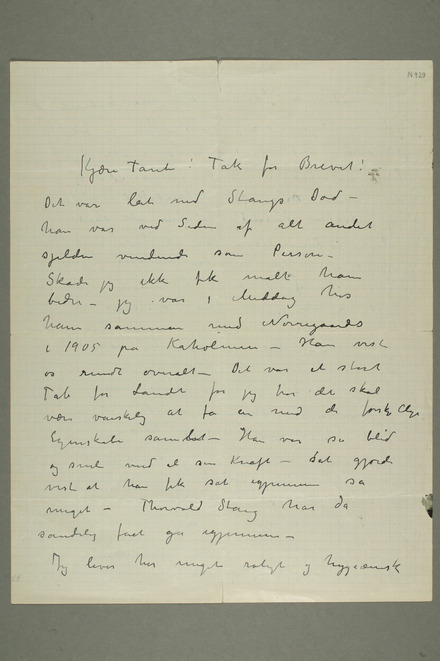 N 929
Kjære Tante! Tak for Brevet!
Det var leit med Stangs Død –
han var ved Siden af alt andet
sjelden vindende som Person –
Skade jeg ikke fik malt ham
bedre – jeg var i Middag hos
ham sammen med Nørregaards
i 1905 på Kaholmen – Han viste
os rundt overalt – Det var et stort
Tab for Landet for jeg tror det skal
være vanskelig at få en med de forskjellige
Egenskaber samlet – Han var så blid
og snil med al sin Kraft – Det gjorde
vist at han fik sat igjennem så
meget – Thorvald Stang har da
sandelig fåt gå igjennem –
Jeg lever her meget roligt og hygiænisk